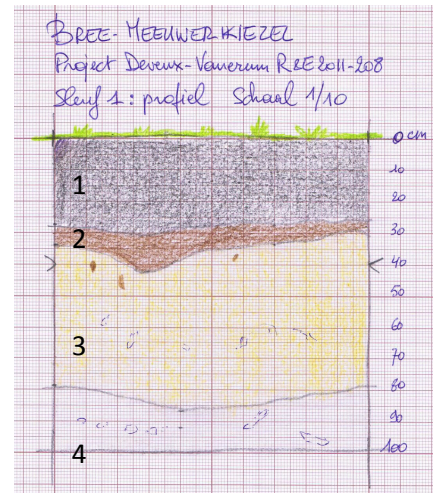 BREE-MEEUWERKIEZEL
Project Deveux-Vanerum R&E 2011-208
Sleuf 1: profiel Schaal 1/10
0 cm
10
1
20
2
30
40
50
60
3
70
80
90
4
100